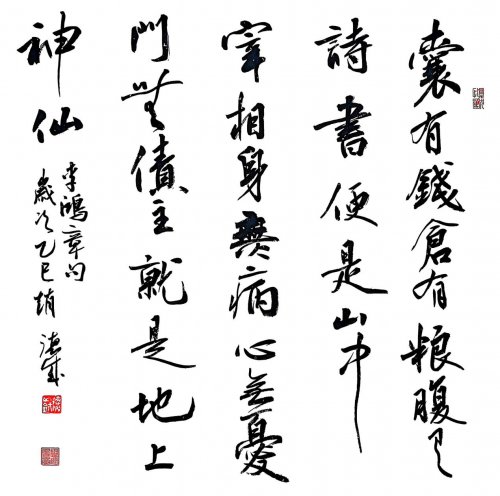 囊有錢倉有粮腹有
詩書便是山中
宰相身無病心無憂
門無債主就是地上
神仙
李鴻章句
歲次乙巳趙德成